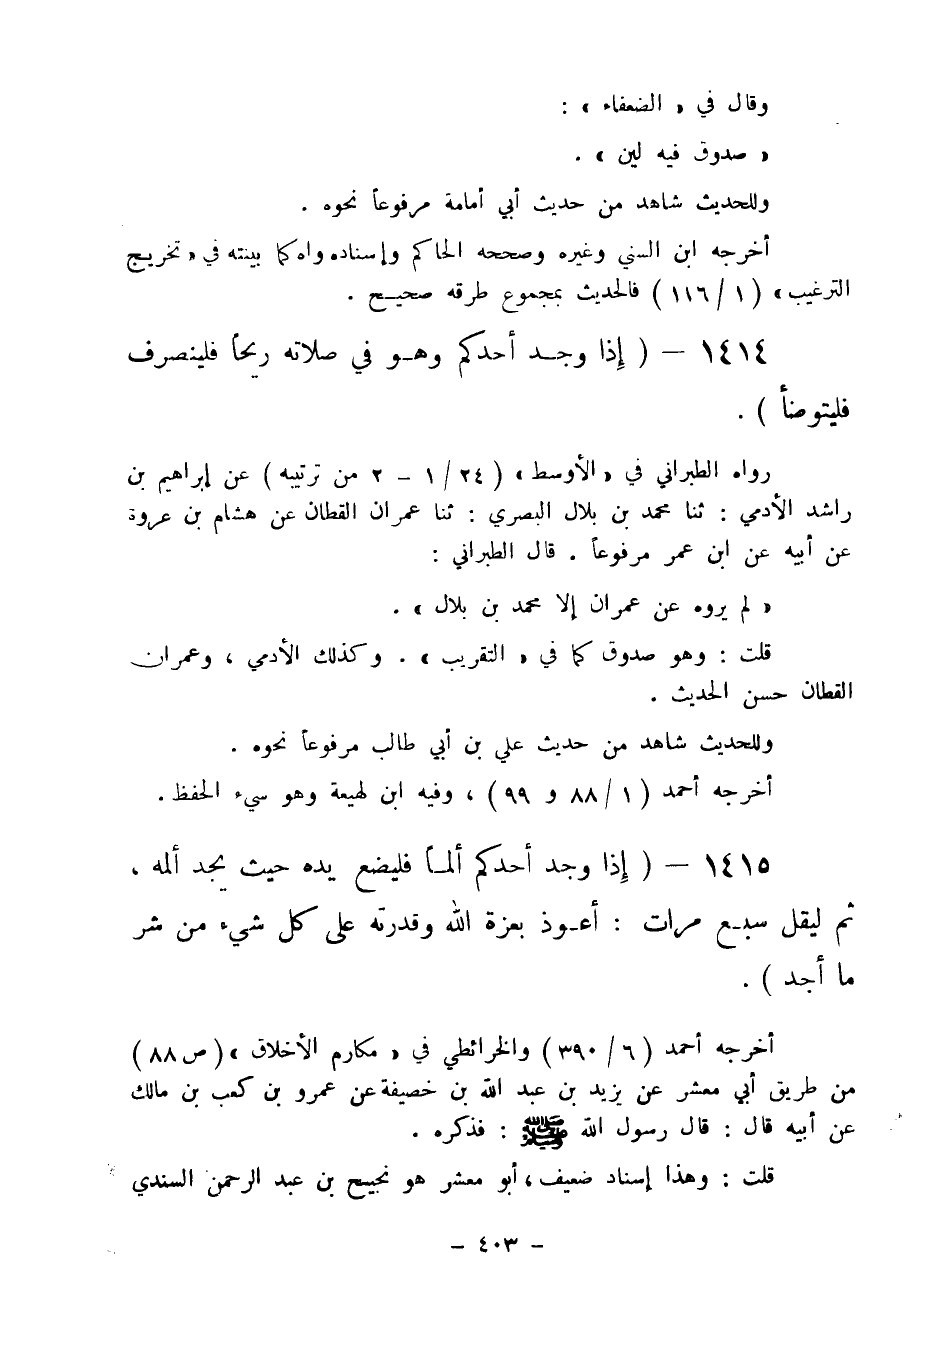 وقال في « الضعفاء » :
« صدوق فيه لين » .
وللحديث شاهد من حديث أبي أمامة مرفوعاً نحوه .
أخرجه ابن السني وغيره وصححه الحاكم وإسناده واه كما بينته في « تخريج
الترغيب » ( ١ / ١١٦ ) فالحديث بمجموع طرقه صحيح .
١٤١٤ – ( إذا وجد أحدكم وهو في صلاته ريحاً فلينصرف
فليتوضأ ) .
رواه الطبراني في « الأوسط » ( ٢٤ / ١ – ٢ من ترتيبه ) عن إبراهيم بن
راشد الأدمي : ثنا محمد بن بلال البصري : ثنا عمران القطان عن هشام بن عروة
عن أبيه عن ابن عمر مرفوعاً . قال الطبراني :
« لم يروه عن عمران إلا محمد بن بلال » .
قلت : وهو صدوق كما في « التقريب » . وكذلك الأدمي ، وعمران
القطان حسن الحديث .
وللحديث شاهد من حديث علي بن أبي طالب مرفوعاً نحوه .
أخرجه أحمد ( ١ / ٨٨ و ٩٩ ) ، وفيه ابن لهيعة وهو سيء الحفظ .
١٤١٥ – ( إذا وجد أحدكم ألماً فليضع يده حيث يجد ألمه ،
ثم ليقل سبع مرات : أعوذ بعزة الله وقدرته على كل شيء من شر
ما أجد ) .
أخرجه أحمد ( ٦ / ٣٩٠ ) والخرائطي في « مكارم الأخلاق » ( ص ٨٨ )
من طريق أبي معشر عن يزيد بن عبد الله بن خصيفة عن عمرو بن كعب بن مالك
عن أبيه قال : قال رسول الله ﷺ : فذكره .
قلت : وهذا إسناد ضعيف ، أبو معشر هو نجيح بن عبد الرحمن السندي
– ٤٠٣ –